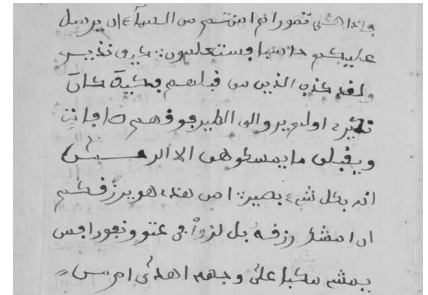 فإذا هي تمور ام امنتم من السماء ان يرسل
عليكم حاصبا فستعلمون كيف نذير
ولقد كذب الذين من قبلهم فكيف كان
نكير اولم يروا الى الطير فوقهم صافات
ما يمسكوهن الا الرحمن
انه بكل شيء بصير امن هذه هو يرزقكم
ان امشك رزقه بل لزوا في عتو ونفور افمن
يمشه مكبا على وجهه اهدى ام من